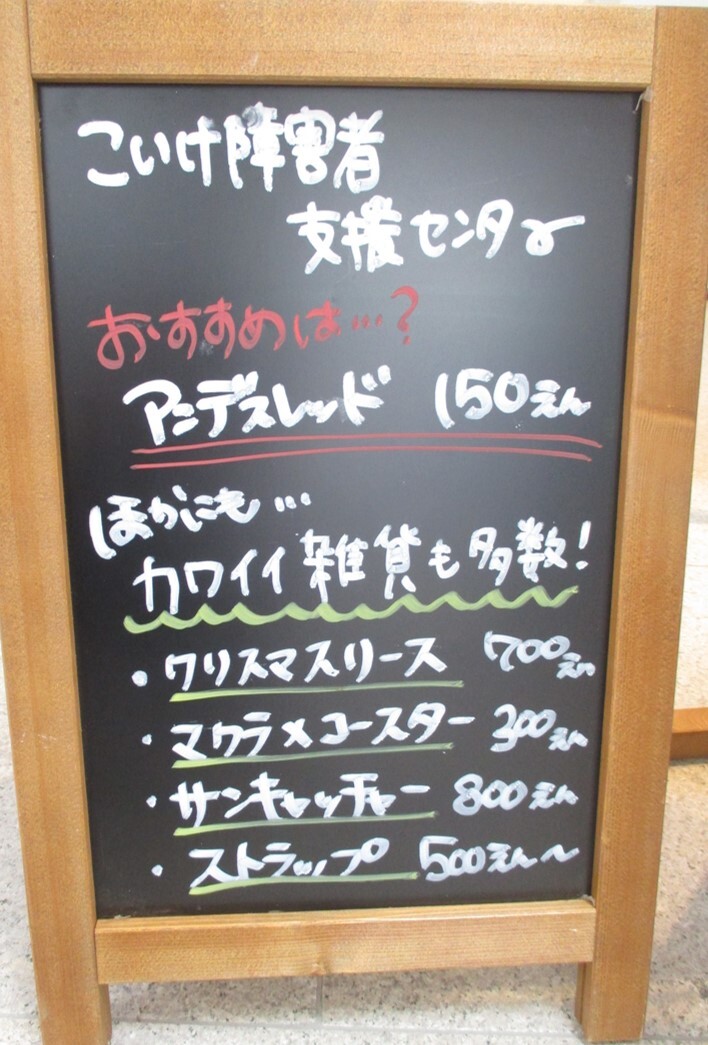 こいけ障害者
支援センター
おすすめは…?
アンデスレッド 150えん
ほかにも…
カワイイ雑貨も多数!
・クリスマスリース 700えん
・マクラメコースター 300えん
・サンキャッチャー 800えん
・ストラップ 500えん〜